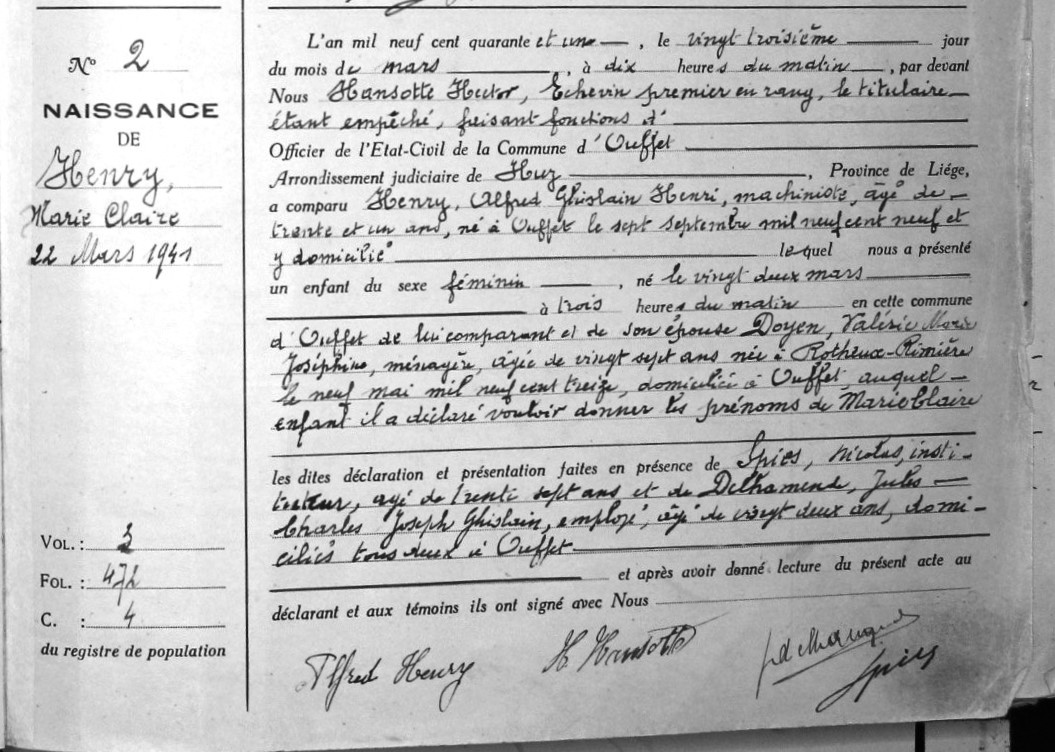 N° 2
NAISSANCE
DE
Henry,
Marie Claire
22 Mars 1941
VOL. : 3
FOL. : 472
C. : 4
du registre de population
L'an mil neuf cent quarante et une, le vingt troisième jour
du mois de mars, à dix heures du matin, par devant
Nous Hansotte Hector, Echevin premier en rang, le titulaire
étant empêché, faisant fonctions d'
Officier de l'Etat-Civil de la Commune d'Ouffet
Arrondissement judiciaire de Huy, Province de Liége,
a comparu Henry, Alfred Ghislain Henri, machiniste, âgé de
trente et un ans, né à Ouffet le sept septembre mil neuf cent neuf et
y domicilié lequel nous a présenté
un enfant du sexe féminin, né le vingt deux mars
à trois heures du matin en cette commune
d'Ouffet de lui comparant et de son épouse Doyen, Valérie Marie
Joséphine, ménagère, âgée de vingt sept ans née à Rotheux-Rimière
le neuf mai mil neuf cent treize, domiciliée à Ouffet, auquel
enfant il a déclaré vouloir donner les prénoms de Marie Claire
les dites déclaration et présentation faites en présence de Spies, Nicolas, insti-
tuteur, agé de trente sept ans et de Jules
Charles Joseph Ghislain, employé, âgé de vingt deux ans, domi-
ciliés tous deux à Ouffet
et après avoir donné lecture du présent acte au
déclarant et aux témoins ils ont signé avec Nous
Alfred Henry H Hansotte
Spies